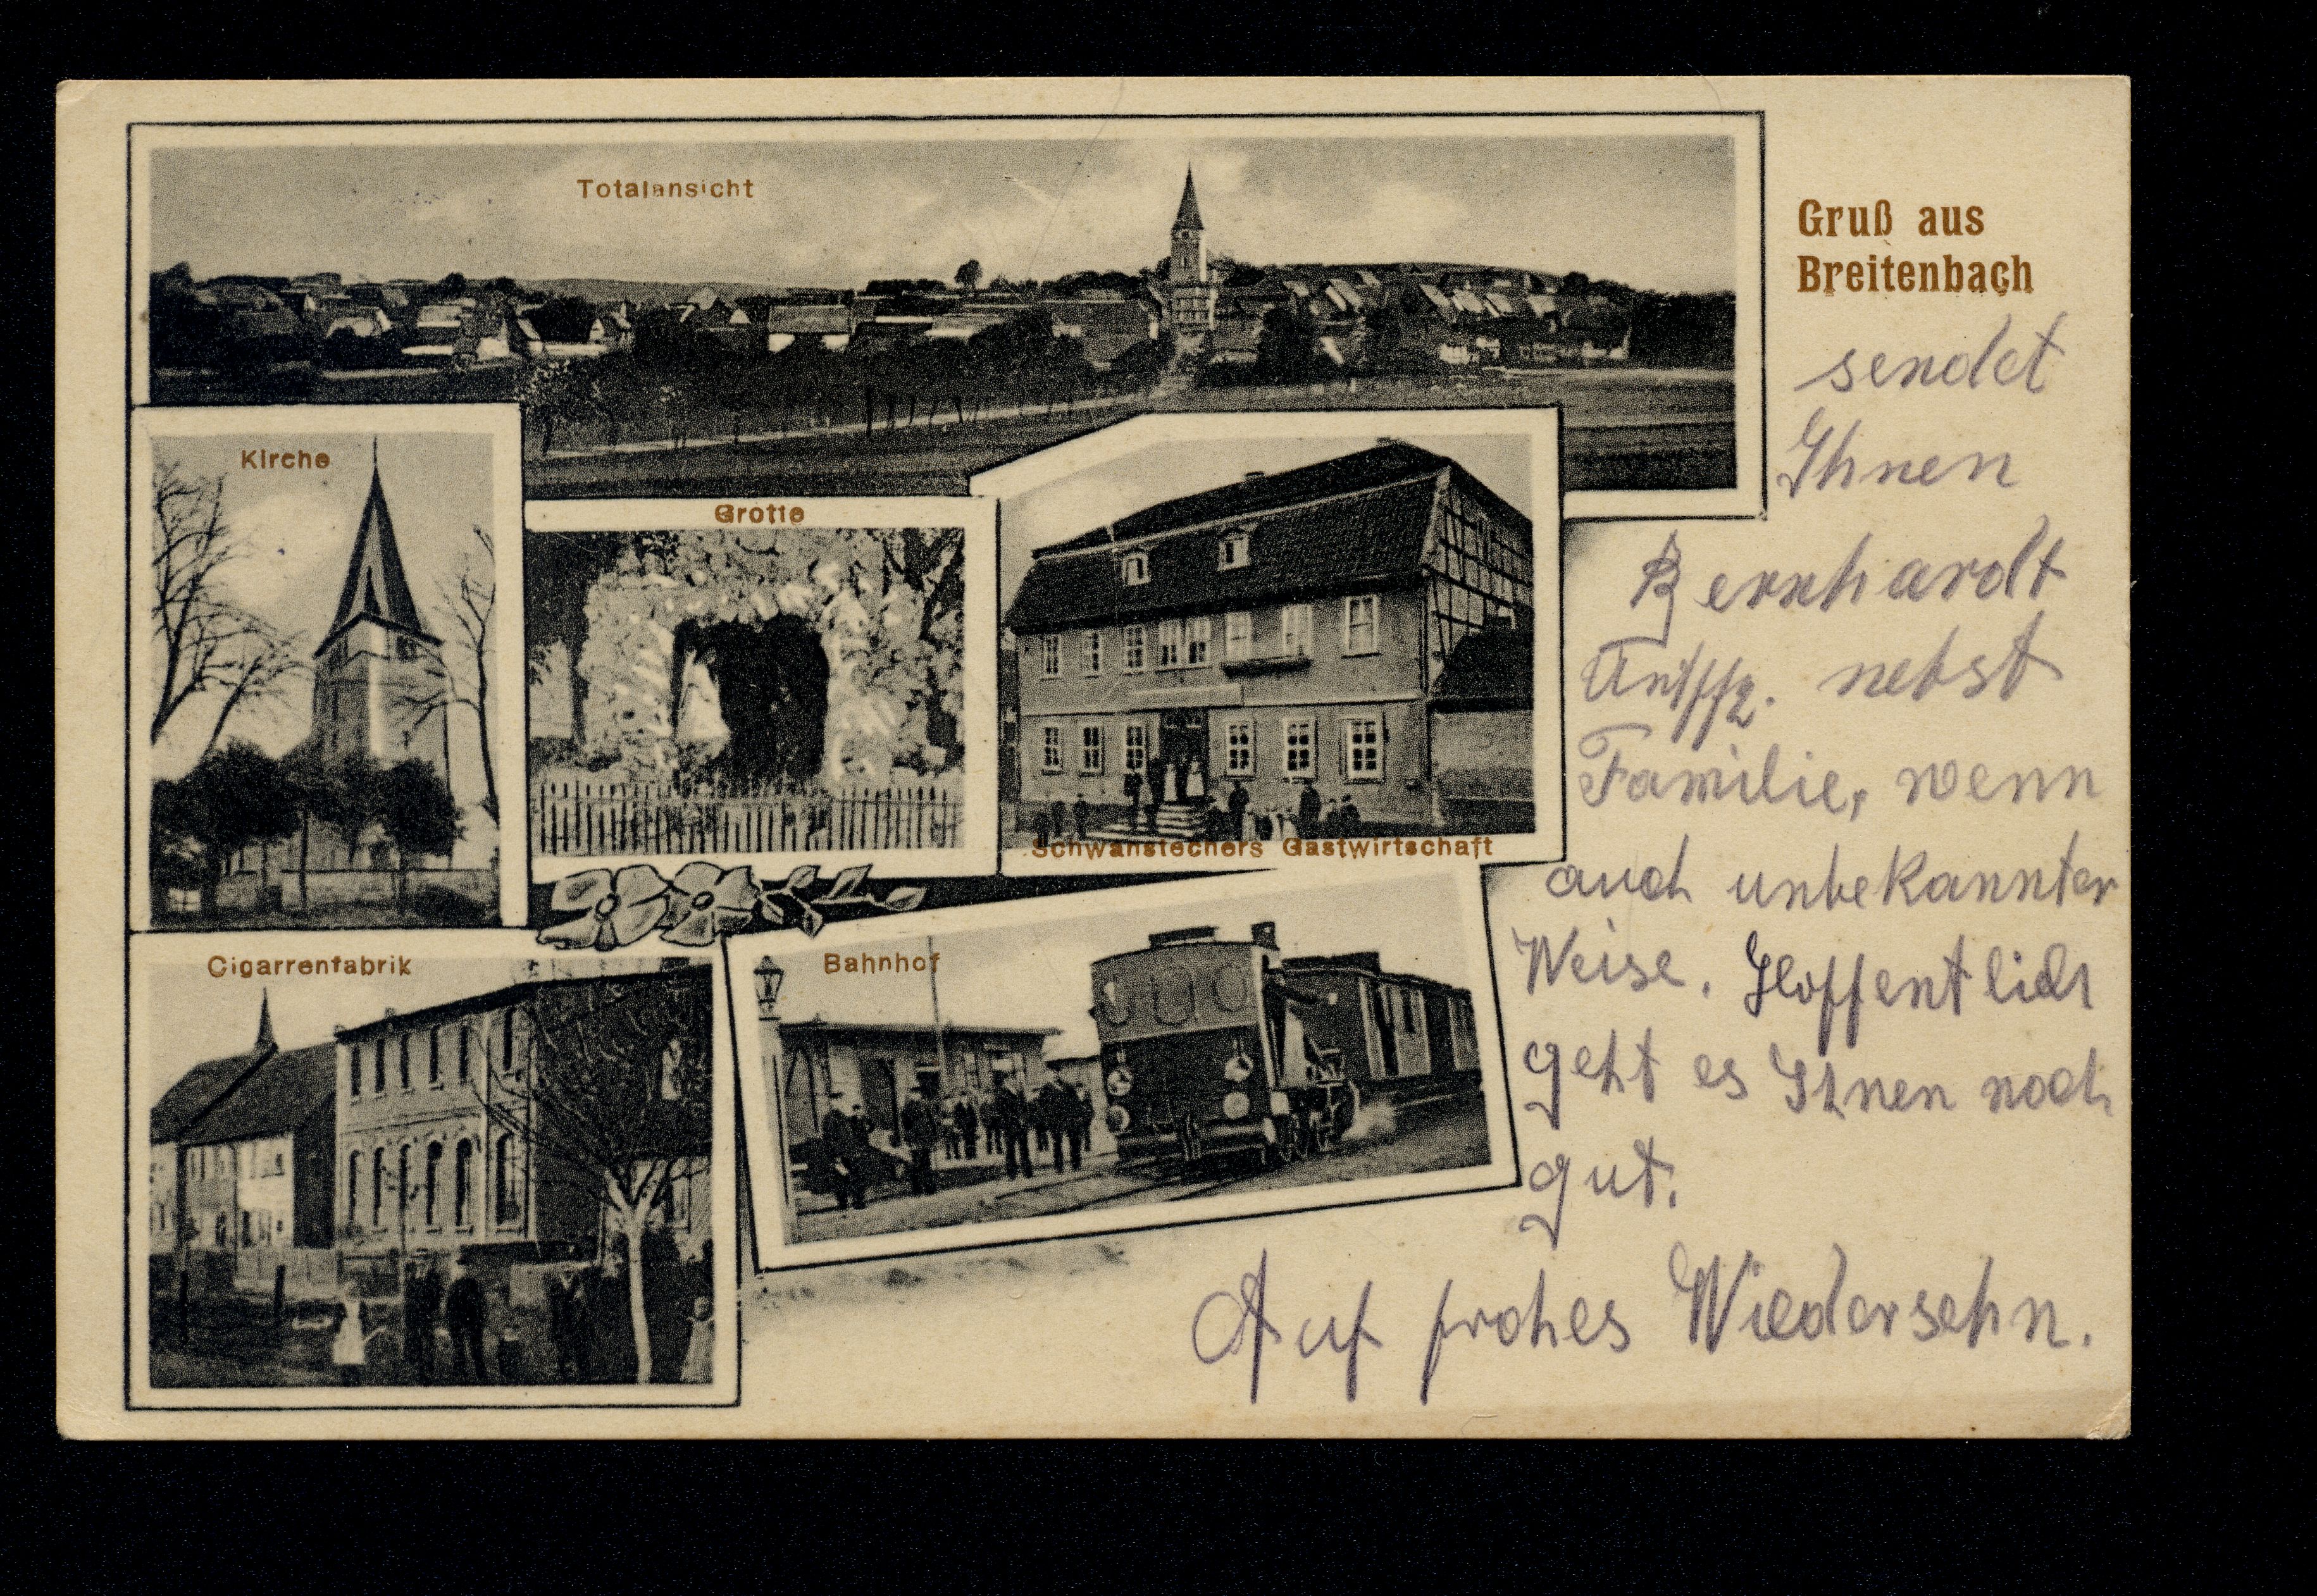 Totalansicht
Gruß aus
Breitenbach
sendet
Ihnen
Bernhardt
nebst
Familie, wenn
auch unbekannter
Weise. Hoffentlich
geht es Ihnen noch
gut.
Auf frohes Wiedersehn.
Kirche
Grotte
Schwanstechers Gastwirtschaft
Cigarrenfabrik
Bahnhof